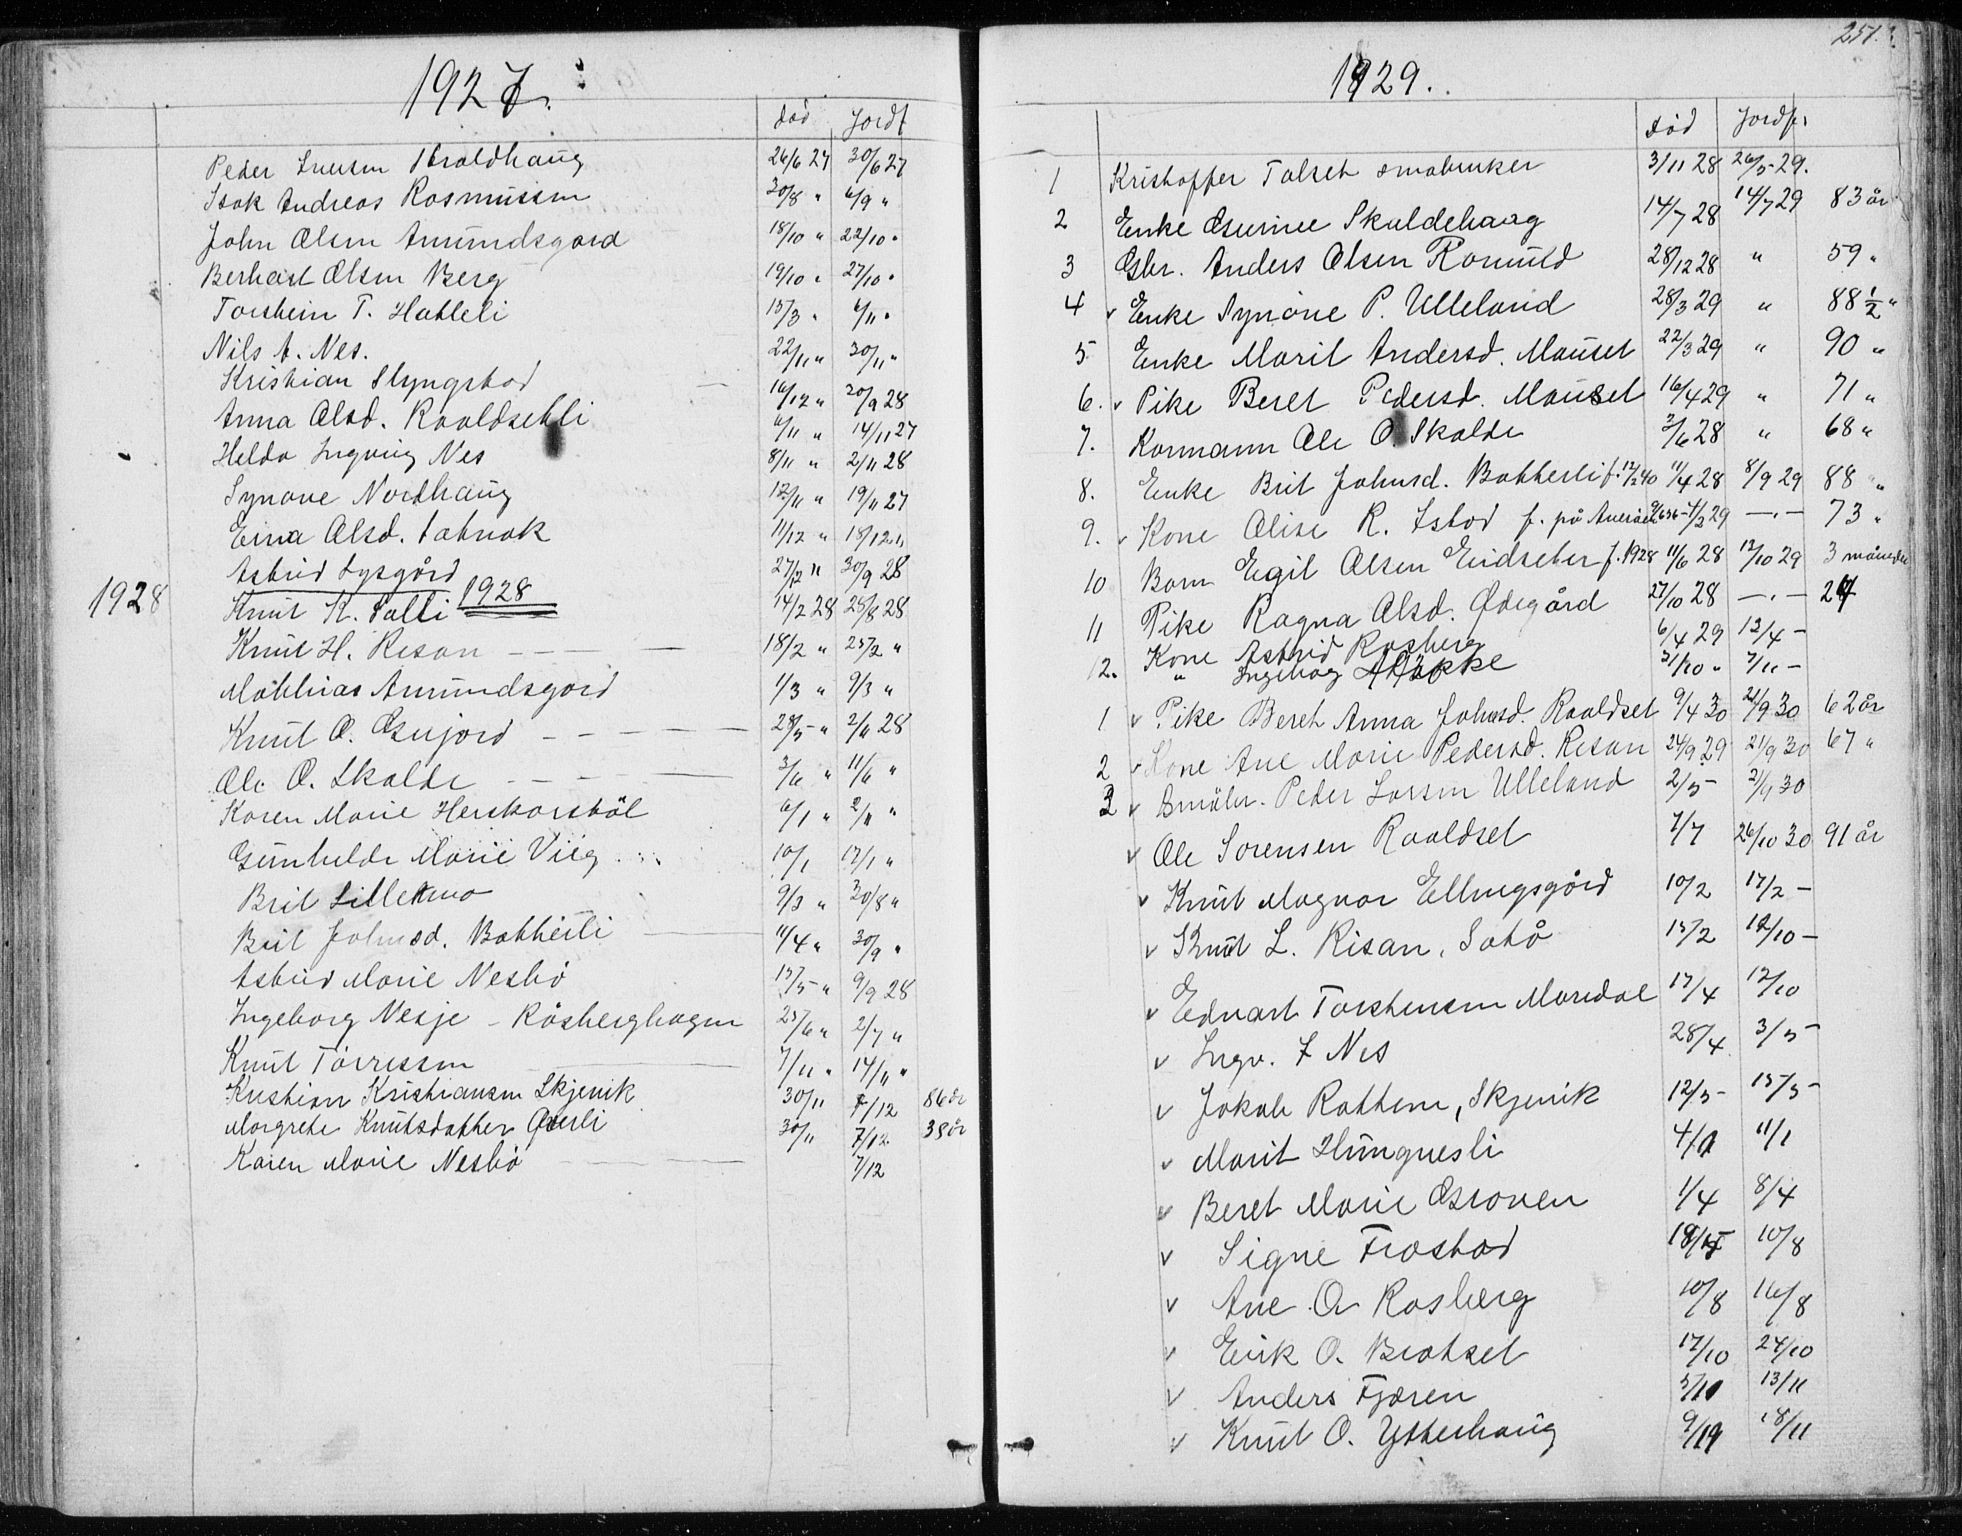 1927.
Død Jordf
Peder Iversen Haraldhaug 26/6 27 30/6 27
Isak Andreas Rasmussen 30/8 " 6/9 "
John Olsen Amundsgård 18/10 " 22/10 "
Berhart Olsen Berg 19/10 " 27/10 "
Torstein T. Hatleli 15/3 " 6/11 "
Nils A. Nes. 22/11 " 30/11 "
Kristian Slyngstad 16/12 " 20/9 28
Anna Olsd. Raaldsetli 6/11 " 14/11 27
Helda Ingvirg Nes 8/11 " 2/11 28
Synøve Nordhaug 12/11 " 19/11 27
Eina Olsd. 11/12 " 18/12 "
Astrid Lysgård 27/12 " 30/9 28
1928
1928 Knut K. Salli 14/2 28 25/8 28
Knut H. Risan 18/2 " 25/2 "
Mathias Amundsgård 1/3 " 9/3 "
Knut O. Gujord 28/5 " 2/11 28
Ole O. Skalde 3/6 " 11/6 "
Karen Marie Herskarsbøl 6/1 " 2/11 "
Gunhilde Marie Viig 10/1 17/1 "
Brit Lillemo 9/3 " 30/8 "
Brit Johnsd. Bakkerli 11/4 " 30/9 "
Astrid Marie Nesbø 15/5 " 9/9 28
Ingeborg Nesje - Råsberghagen 25/6 " 2/7 "
Knut Torressen 7/11 " 14/11 "
Kristian Kristiansen Skjervik 30/11 7/12 86 år
Margrete Knutsdatter Øverli 30/11 7/12 38 år
Karen Marie Nesbø 7/12
251.
1929.
Død Jordf.
1 Kristoffer Talset småbruker 3/11 28 26/5 29.
2 Enke Gurine Skaldehaug 14/7 28 14/7 29 83 år
3 Gbr. Anders Olsen Romuld 28/12 28 " 59 "
4 v Enke Synøve P. Ulleland 28/3 29 " 88 1/2 "
5 Enke Marit Andersd. Mauset 22/3 29 " 90 "
6. v Pike Beret Pedersd. Mauset 16/4 29 " 71 "
7. Kårmann Ole O. Skalde 3/6 28 " 68 "
8. Enke Brit Johnsd. Bakkerli f. 12/2 40 11/4 28 8/9 29 88 "
9. v Kone Olise R. Istad f. på Averøen 4/2 29 - " - 73 "
10 Barn Egil Olsen Eidseter f. 1928 11/6 28 12/10 29 3 måneder
11 Pike Ragna Olsd. Ødegård 27/10 28 - " -
12. Kone Astrid Rosberg 6/4 29 13/4 -
" Ingebog 31/10 " 7/11 -
1 v Pike Beret Anna Johnsd. Raaldset 9/4 30 21/9 30 62 år
2 v Kone Ane Marie Pedersd. Risan 24/9 29 21/9 30 67 "
3 v Småbr. Peder Larsen Ulleland 2/5 2/9 30
v Ole Sorensen Raaldset 7/7 26/10 30 91 år
v Knut Magnar Ellingsgård 10/2 17/2 -
v Knut L. Risan, Satå 15/2 12/10 -
v Edvart Torstensen Maridal 17/4 12/10
v Ingv. I Nes 28/4 3/5 -
v Jakob Rottem, Skjervik 12/5 - 15/5 -
v Marit Hungnesli 4/1 11/1
v Beret Marie Groven 1/4 8/4
v Signe Frostad 10/8
v Ane O Rosberg 10/8 16/8
v Erik O. Bratset 17/10 24/10
v Anders Fjæren 13/11
v Knut O. Ytterhaug 18/11